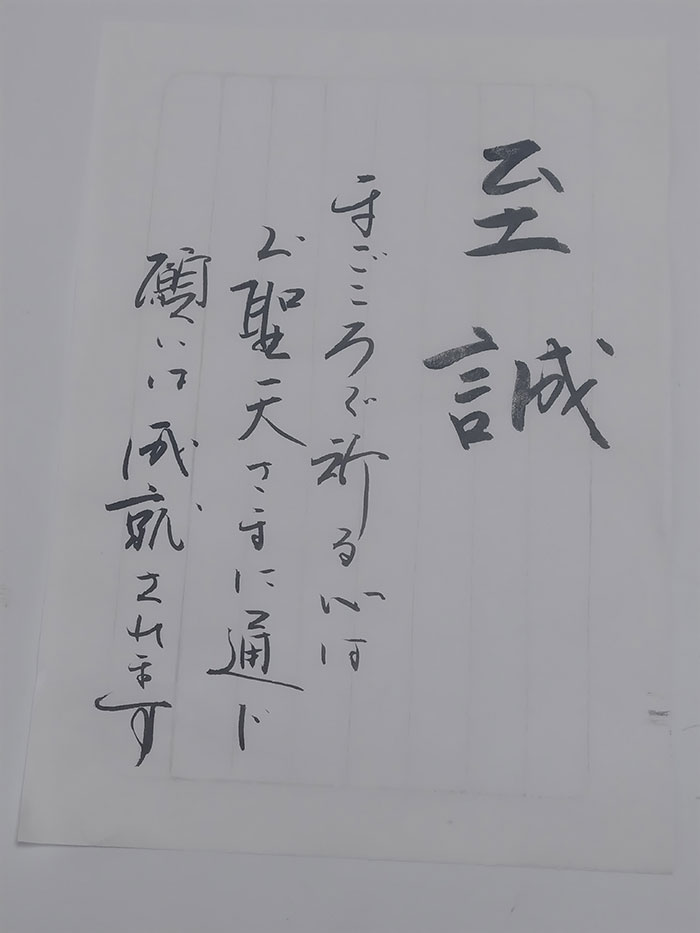 至誠
まごころで祈る心は
心聖天さまに通じ
願いは成就されます